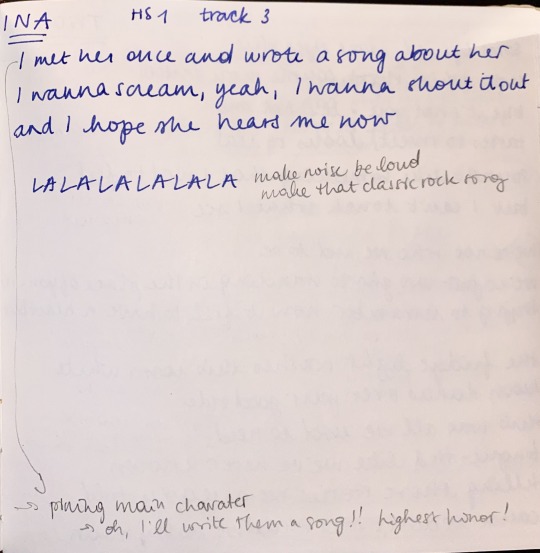 INA HS1 track 3
I met her once and wrote a song about her
I wanna scream, yeah, I wanna shout it out
and I hope she hears me now
LALALALALALA make noise be loud
make that classic rock song
→ pining main charater
→ oh, I'll write them a song!! highest honor!